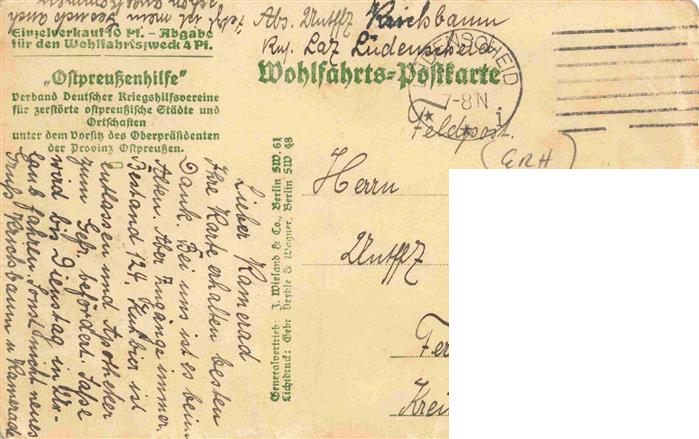 Abs. Untffz Kirschbaum
Res. Laz Lüdenscheid
Einzelverkauf 10 Pf. – Abgabe
für den Wohlfahrtszweck 4 Pf.
„Ostpreußenhilfe"
Verband Deutscher Kriegshilfsvereine
für zerstörte ostpreußische Städte und
Ortschaften
unter dem Vorsitz des Oberpräsidenten
der Provinz Ostpreußen.
Wohlfahrts-Postkarte
LÜDENSCHEID
7-8 N
* * i
Feldpost.
(ERH)
Herrn
Untffz
Fer
Krei
Generalvertrieb: J. Wieland & Co., Berlin SW. 61
Lichtdruck: Gebr Deyhle & Wagner, Berlin SW 48
Lieber Kamerad
Ihre Karte erhalten besten
Dank. Bei uns ist es beim
Alten. Aber Zugänge immer.
Bestand 124. Hutbier ist
entlassen und Apotheker
zum Gefr. befördert. Saße
wird bis Dienstag in Ur-
laub fahren. Sonst nicht neues
Gruß Kirschbaum u Kamerad
Jetzt ist mein
schon angekommen